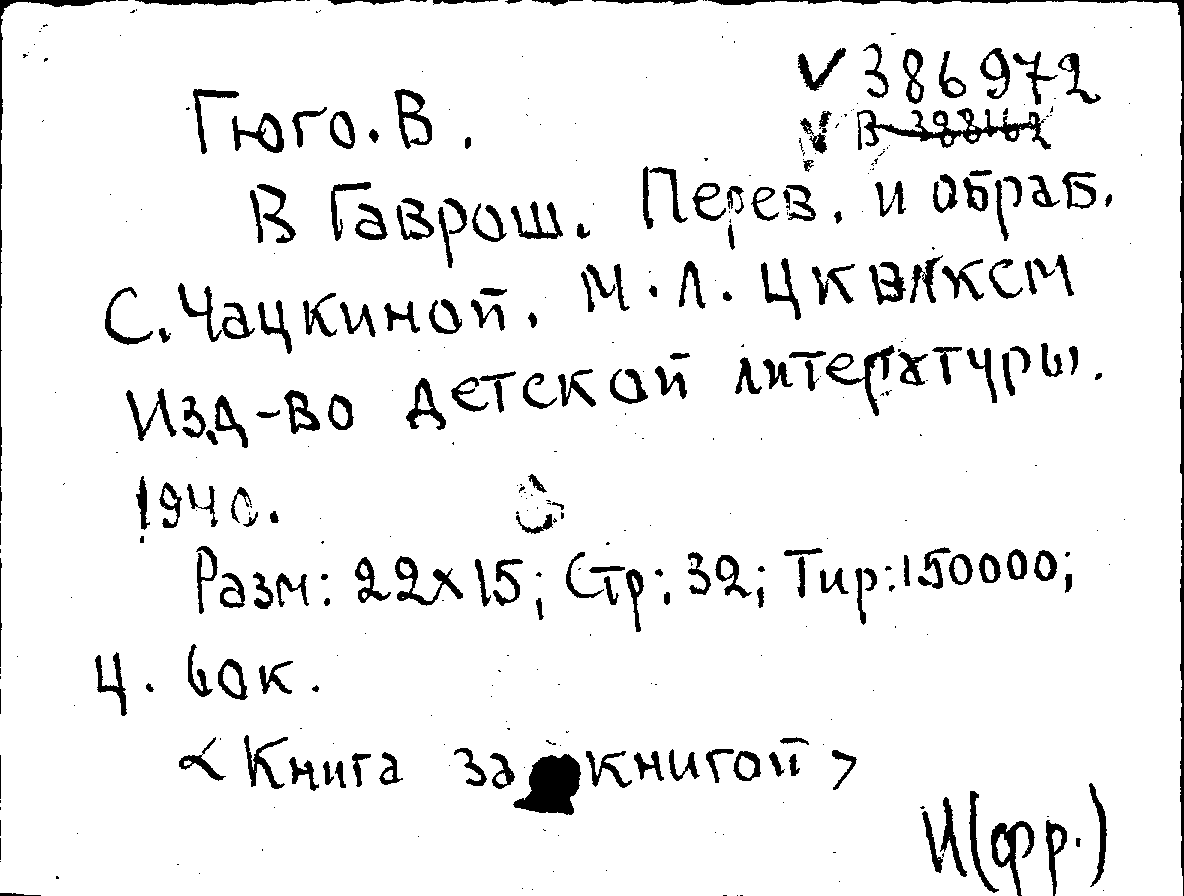 V 386972
Гюго. В.
V В 388162
В Гаврош. Перев. и обраб.
С. Чацкиной. М. Л. ЦК ВЛКСМ
Изд-во детской литературы.
1940.
Разм: 22х15; Стр: 32; Тир: 150000;
Ц. 60к.
<Книга за книгой>
И(фр.)